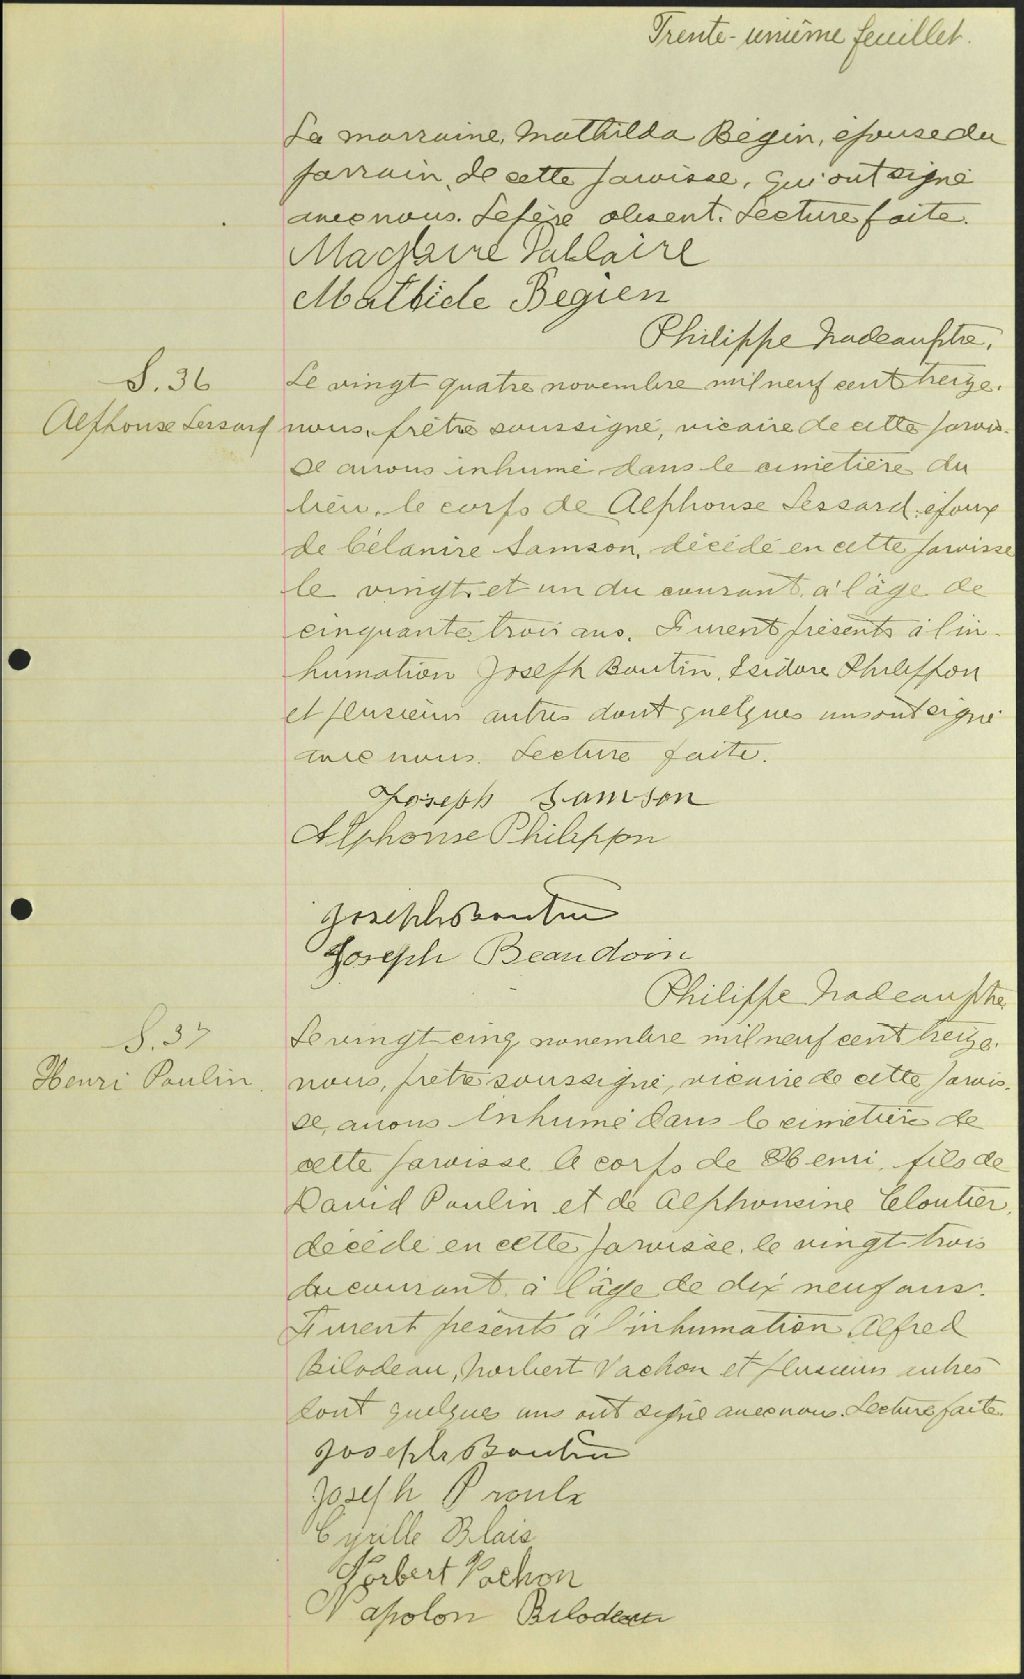 Trente-unième feuillet.
La marraine, Mathilda Bégin, épouse du
parrain, de cette paroisse, qui ont signé
avec nous. Le père absent. Lecture faite.
Mathilde Begien
Philippe Nadeau ptre.
S. 36
Alphonse Lessard
Le vingt quatre novembre mil neuf cent treize,
nous, prêtre soussigné, vicaire de cette parois-
se avons inhumé dans le cimetière du
lieu, le corps de Alphonse Lessard, époux
de Célanire Samson, décédé en cette paroisse
le vingt et un du courant, à l'âge de
cinquante trois ans. Furent présents à l'in-
humation Joseph Boutin, Isidore Philippon
et plusieurs autres dont quelques uns ont signé
avec nous. Lecture faite.
Joseph Samson
Alphonse Philippon
Joseph Boutin
Joseph Beaudoin
Philippe Nadeau ptre
S. 37
Henri Poulin
Le vingt cinq novembre mil neuf cent treize,
nous, prêtre soussigné, vicaire de cette parois-
se, avons inhumé dans le cimetière de
cette paroisse le corps de Henri, fils de
David Poulin et de Alphonsine Cloutier,
décédé en cette paroisse, le vingt trois
du courant, à l'âge de dix neuf ans.
Furent présents à l'inhumation Alfred
Bilodeau, Norbert Vachon et plusieurs autres
dont quelques uns ont signé avec nous. Lecture faite.
Joseph Boutin
Joseph Proulx
Cyrille Blais
Norbert Vachon
Napolon Bilodeau